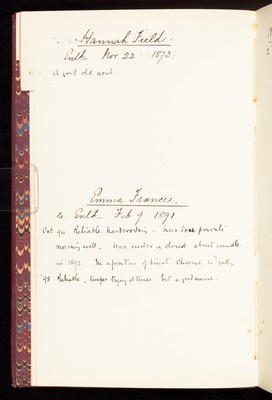 Hannah Field:
Entd Nov 22 1873:
A quiet old soul
Emma France.
Entd Feb 9 1891
Oct 94. Reliable. hardworking. has done private
nursing well. Was under a cloud about
in 1892. In a position of trust
98 Reliable, temper trying at times but a good nurse.